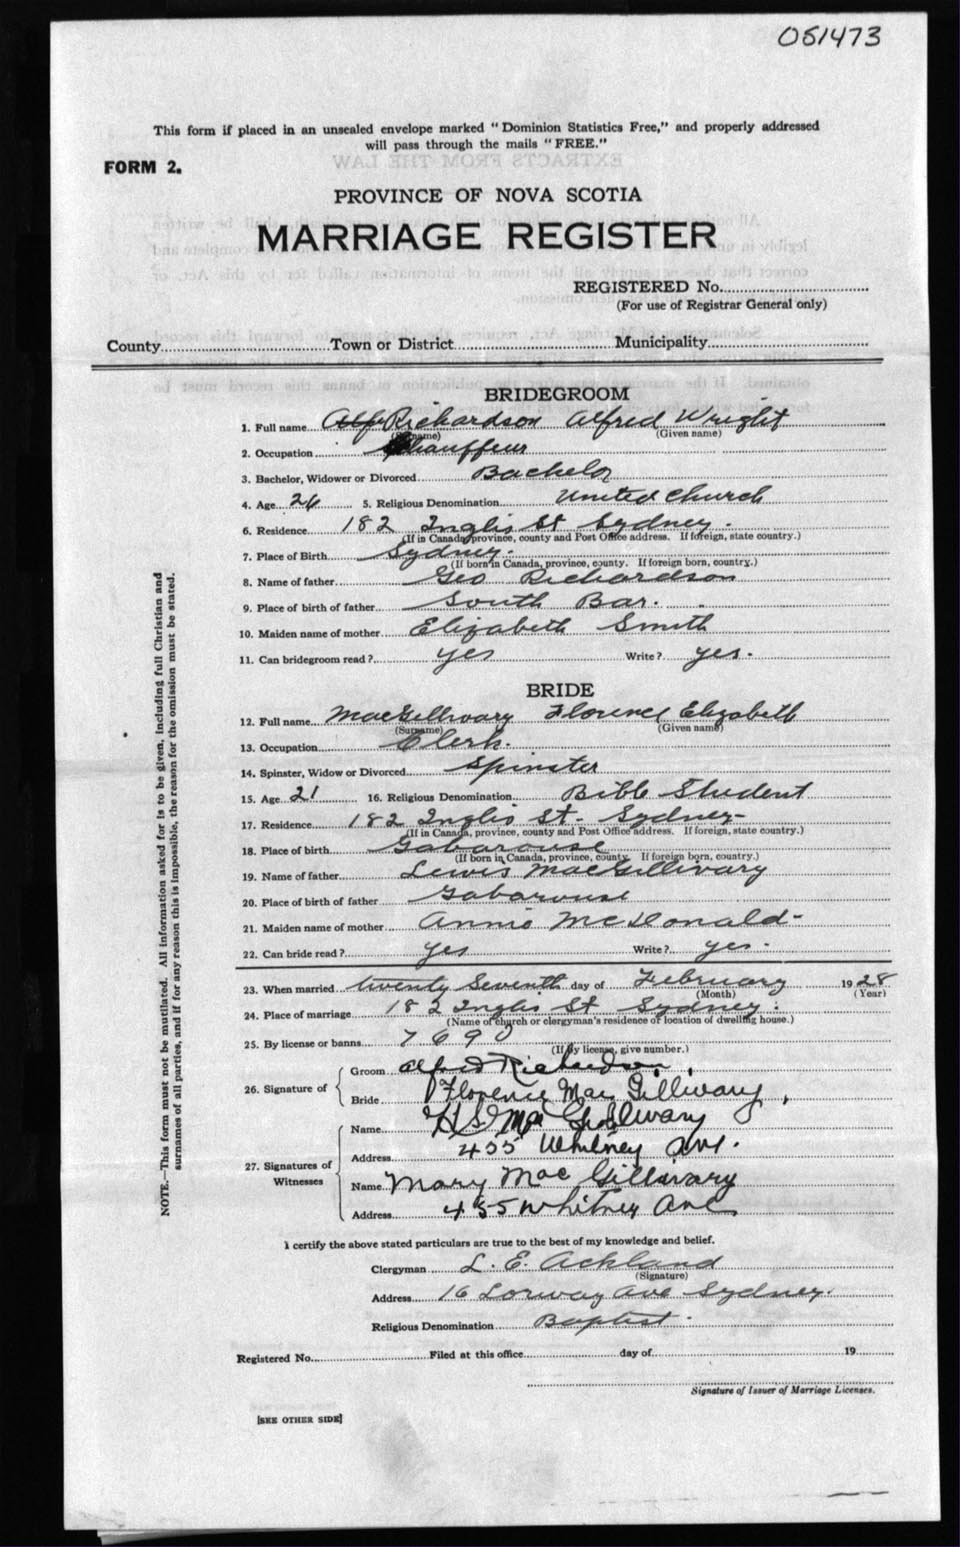 051473
This form if placed in an unsealed envelope marked "Dominion Statistics Free," and properly addressed
will pass through the mails "FREE."
FORM 2.
PROVINCE OF NOVA SCOTIA
MARRIAGE REGISTER
REGISTERED No.
(For use of Registrar General only)
County Town or District Municipality
BRIDEGROOM
1. Full name Richardson Alfred Wright
(Surname) (Given name)
2. Occupation Chauffeur
3. Bachelor, Widower or Divorced Bachelor
4. Age 24 5. Religious Denomination United Church
6. Residence 182 Inglis St Sydney.
(If in Canada, province, county and Post Office address. If foreign, state country.)
7. Place of Birth Sydney.
(If born in Canada, province, county. If foreign born, country.)
8. Name of father Geo Richardson
9. Place of birth of father South Bar.
10. Maiden name of mother Elizabeth Smith
11. Can bridegroom read? yes Write? yes.
BRIDE
12. Full name MacGillivary Florence Elizabeth
(Surname) (Given name)
13. Occupation Clerk.
14. Spinster, Widow or Divorced Spinster
15. Age 21 16. Religious Denomination Bible Student
17. Residence 182 Inglis St. Sydney
(If in Canada, province, county and Post Office address. If foreign, state country.)
18. Place of birth Gabarouse
(If born in Canada, province, county. If foreign born, country.)
19. Name of father Lewis MacGillivary
20. Place of birth of father Gabarouse
21. Maiden name of mother Annie McDonald
22. Can bride read? yes Write? yes.
23. When married twenty Seventh day of February 1928
(Month) (Year)
24. Place of marriage 182 Inglis St Sydney.
(Name of church or clergyman's residence or location of dwelling house.)
25. By license or banns 7690
(If by license, give number.)
26. Signature of
Groom Alfred Richardson
Bride Florence MacGillivary
27. Signatures of Witnesses
Name H S MacGillivary
Address 455 Whitney Ave.
Name Mary MacGillivary
Address 455 Whitney Ave
I certify the above stated particulars are true to the best of my knowledge and belief.
Clergyman L. E. Ackland
(Signature)
Address 16 Lorway Ave Sydney.
Religious Denomination Baptist.
Registered No. Filed at this office day of 19
Signature of Issuer of Marriage Licenses.
[SEE OTHER SIDE]
NOTE.—This form must not be mutilated. All information asked for is to be given, including full Christian and
surnames of all parties, and if for any reason this is impossible, the reason for the omission must be stated.